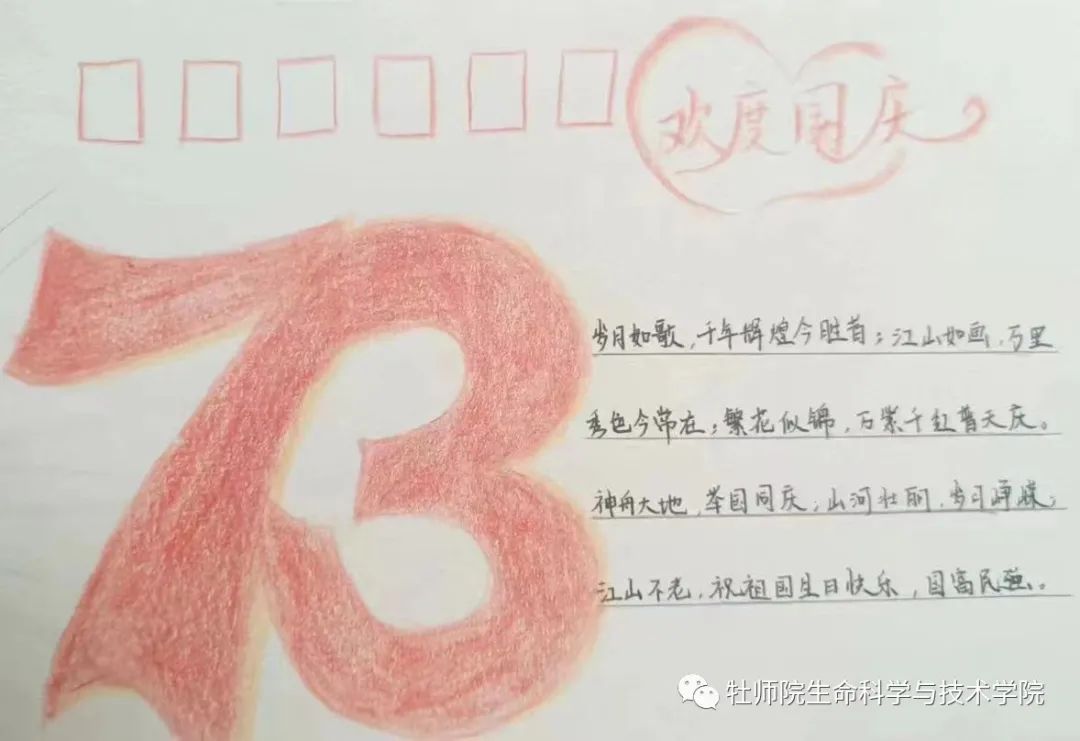 欢度国庆
73
岁月如歌，千年辉煌今胜昔；江山如画，万里
秀色今常在；繁花似锦，万紫千红普天庆。
神舟大地，举国同庆；山河壮丽，岁月峥嵘；
江山不老，祝祖国生日快乐，国富民强。
牡师院生命科学与技术学院